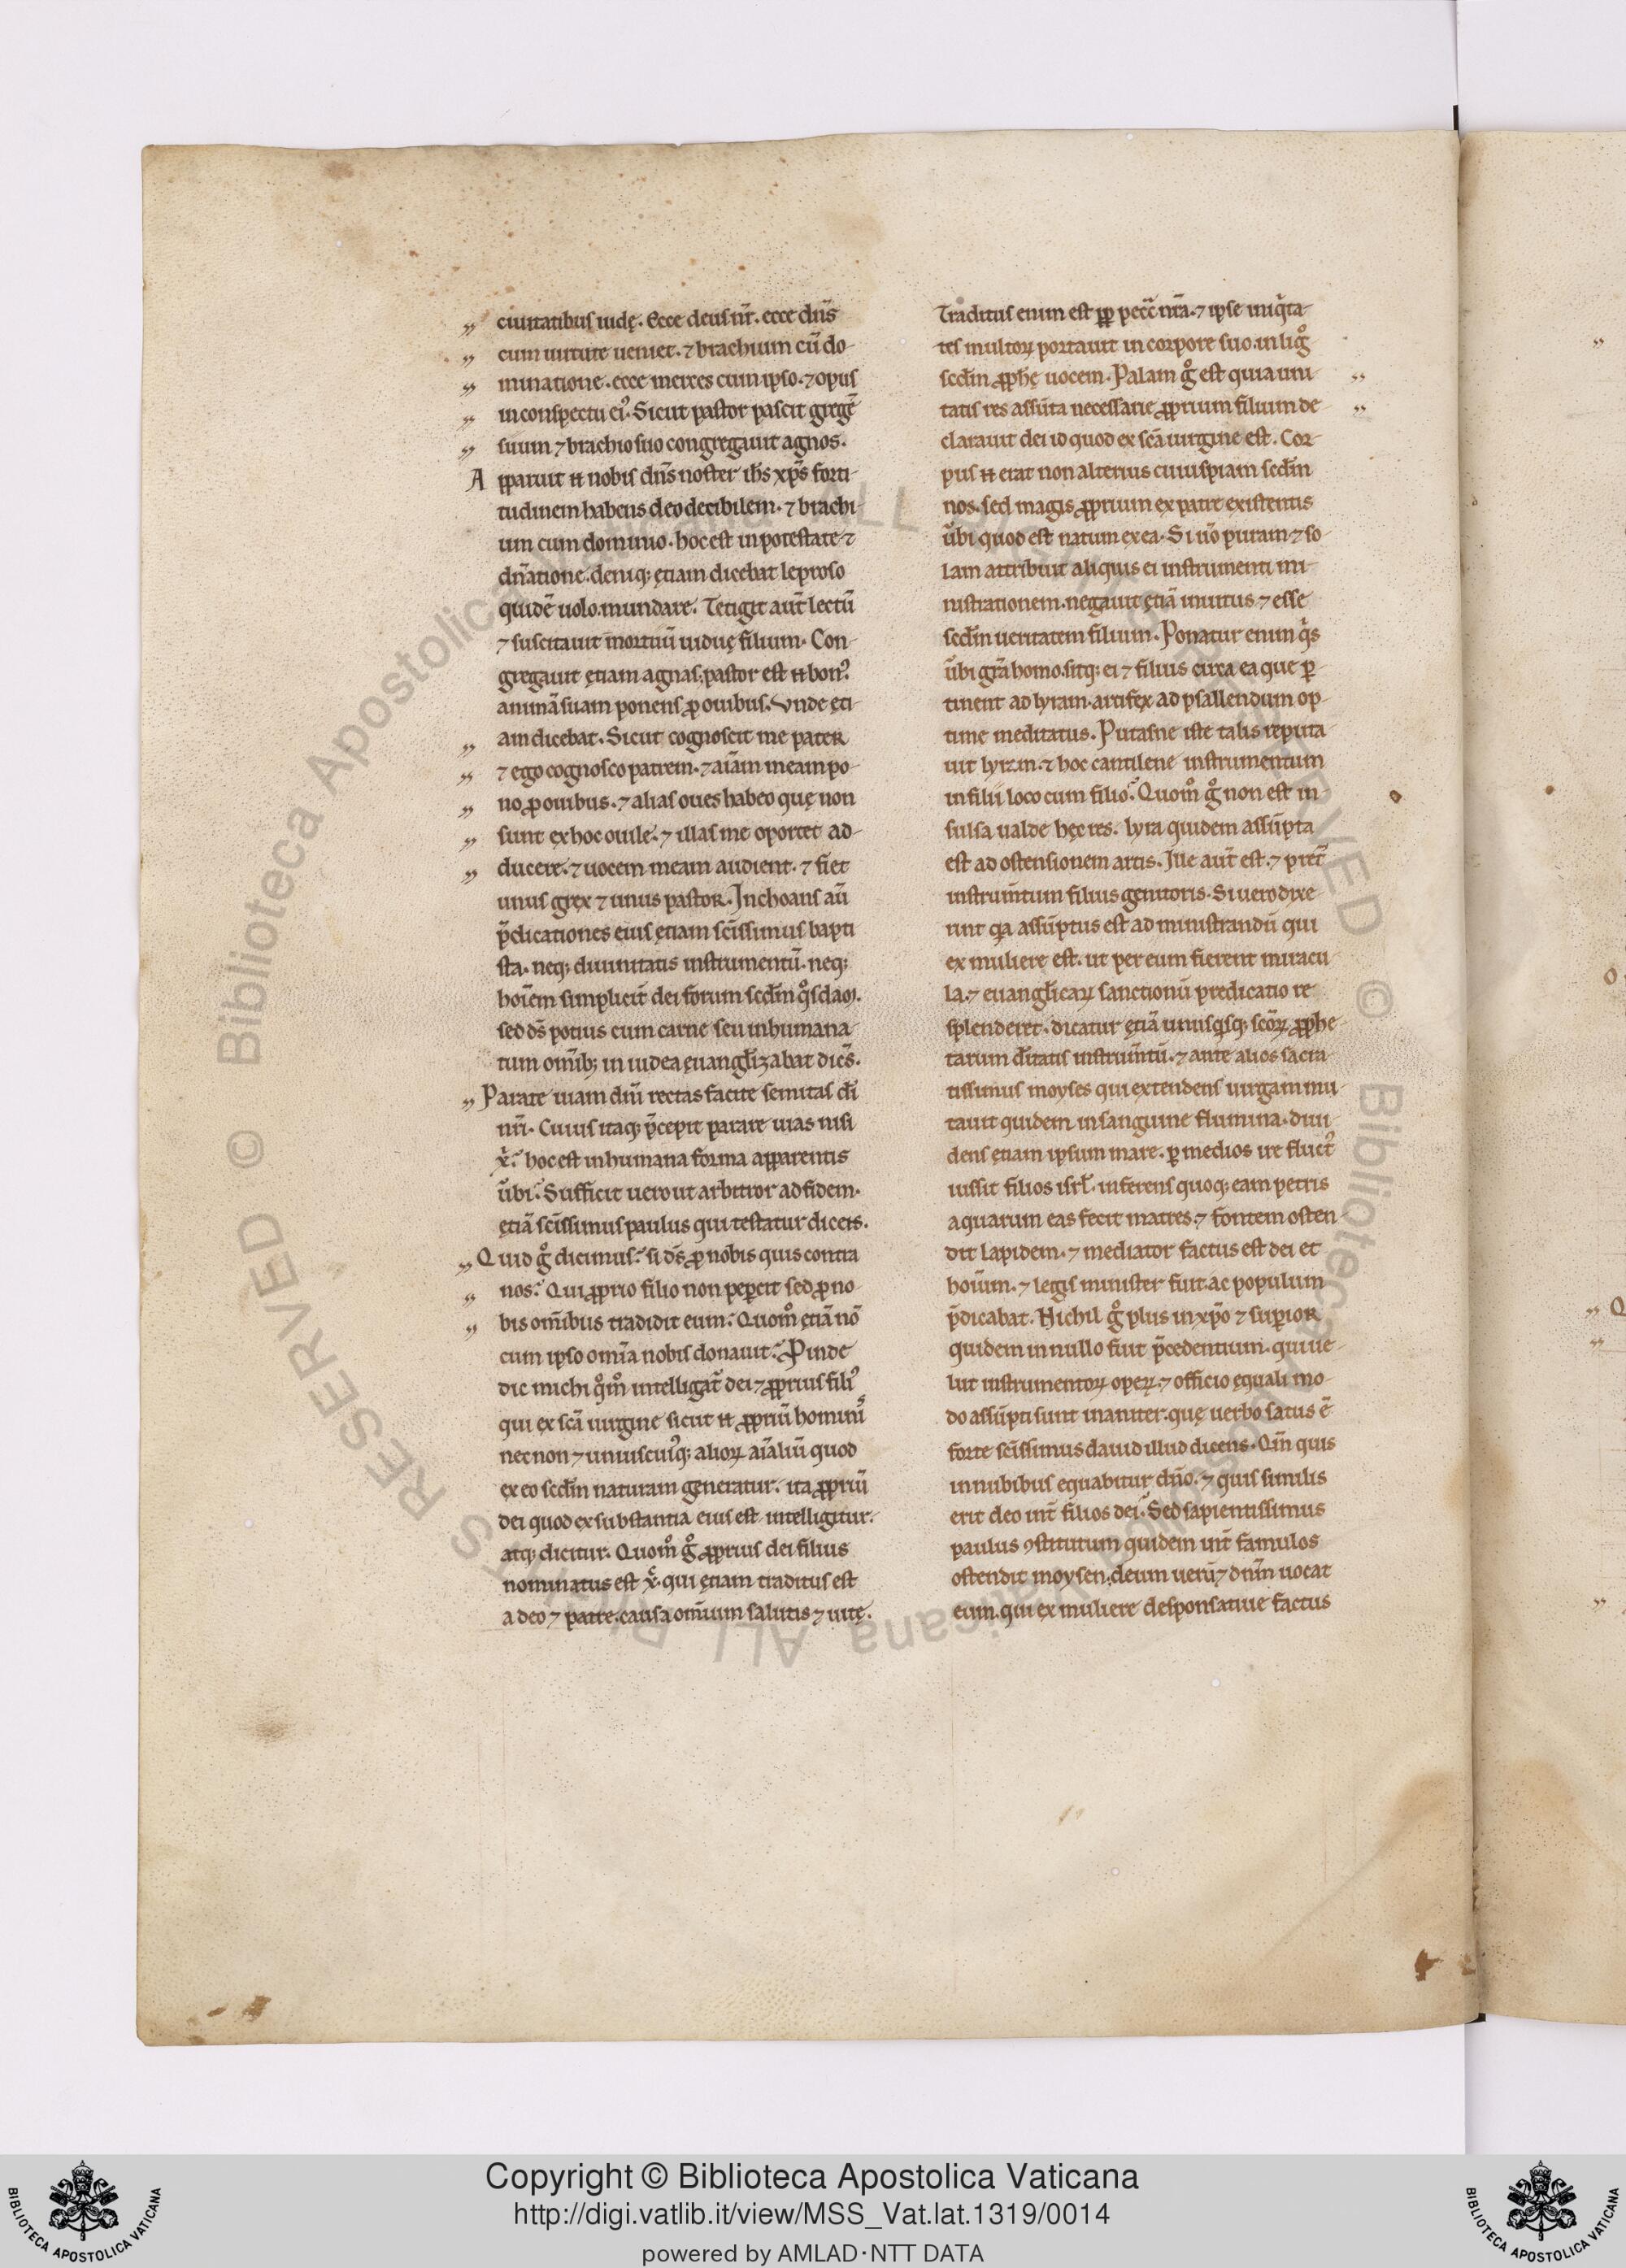 ciuitatibus iudę. Ecce deus nr̄. ecce dn̄s
cum uirtute ueniet. ⁊ brachium cū do-
minatione. ecce merces cum ipso. ⁊ opus
in conspectu ei᷒. Sicut pastor pascit gregē
suum ⁊ brachio suo congregauit agnos.
Apparuit n̄ nobis dn̄s noster ih̄s xp̄s forti-
tudinem habens deo decibilem. ⁊ brachi-
um cum dominio. hoc est in potestate ⁊
dn̄atione. deniq; ętiam dicebat leproso
quidē uolo. mundare. Tetigit aut̄ lectū
⁊ suscitauit mortuū uiduę filium. Con-
gregauit ętiam agnas. pastor est n̄ bon᷒.
animā suam ponens ꝓ ouibus. Vnde eti-
am dicebat. Sicut cognoscit me pater
⁊ ego cognosco patrem. ⁊ aīam meam po-
no ꝓ ouibus. ⁊ alias oues habeo quę non
sunt ex hoc ouile. ⁊ illas me oportet ad-
ducere. ⁊ uocem meam audient. ⁊ fiet
unus grex ⁊ unus pastor. Inchoans aū
p̄dicationes eius ętiam sc̄issimus bapti
sta. neq; diuinitatis instrumentū. neq;
hoīem simplicit̄ dei forum scd̄m qͦsdam.
sed ds̄ potius cum carne seu inhumana-
tum omīb; in iudea euangl̄izabat dicēs.
Parate uiam dn̄i rectas facite semitas di
nr̄i. Cuius itaq; p̄cepit parare uias nisi
x̄. hoc est in humana forma apparentis
ūbi. Sufficit uero ut arbitror ad fidem.
ętiā sc̄issimus paulus qui testatur dicens.
Quid gͦ dicimus. si ds̄ ꝓ nobis quis contra
nos. Qui ꝓprio filio non peꝑcit sed ꝓ no-
bis om̄ibus tradidit eum. Quom̊ ętiā nō
cum ipso omīa nobis donauit. Proinde
dic michi qͦm̊ intelligat̄ dei ⁊ ꝓprius fili᷒
qui ex sc̄a uirgine sicut n̄ ꝓpriū hominis
nec non ⁊ uniuscui᷒q; alioꝝ aīaliū quod
ex eo scd̄m naturam generatur. ita ꝓpriū
dei quod ex substantia eius est intelligitur.
atq; dicitur. Quom̊ gͦ ꝓprius dei filius
nominatus est x̄. qui ętiam traditus est
a deo ⁊ patre. causa om̄ium salutis ⁊ uitę.
Traditus enim est ꝓp pecc̄ nr̄a. ⁊ ipse iniq̄ta-
tes multoꝝ portauit in corpore suo. in lign̊
scd̄m ꝓphę uocem. Palam gͦ est quia uni-
tatis res assūta necessarie ꝓprium filium de
clarauit dei id quod ex sc̄a uirgine est. Cor-
pus n̄ erat non alterius cuiuspiam scd̄m
nos. sed magis ꝓprium ex patre existentis
ūbi quod est natum ex ea. Si ūo puram ⁊ so-
lam attribuit aliquis ei instrumenti mi-
nistrationem. negauit ętiā inuitus ⁊ esse
scd̄m ueritatem filium. Ponatur enim q̄s
ūbi gr̄a homo. sitq; ei ⁊ filius circa ea que ꝑ-
tinent ad lyram. artifex ad psallendum op-
time meditatus. Putasne iste talis reputa
uit lyram. ⁊ hoc cantilene instrumentum
in filii loco cum filio. Quom̊ gͦ non est in-
sulsa ualde hęc res. lyra quidem assūpta
est ad ostensionem artis. Ille aut̄ est. ⁊ pret̄
instrum̄tum filius genitoris. Si uero dixe-
rint qa assūptus est ad ministrandū qui
ex muliere est. ut per eum fierent miracu
la. ⁊ euangl̄icaꝝ sanctionū predicatio re-
splenderet. dicatur ętiā unusq̄sq; sc̄oꝝ ꝓphe-
tarum d̄itatis instrum̄tū. ⁊ ante alios sacra-
tissimus moyses qui extendens uirgam mu-
tauit quidem in sanguine flumina. diui-
dens ętiam ipsum mare. ꝑ medios ire fluct᷒
iussit filios isrl̄. inferens quoq; eam petris
aquarum eas fecit matres. ⁊ fontem osten-
dit lapidem. ⁊ mediator factus est dei et
hoīum. ⁊ legis minister fuit. ac populum
p̄dicabat. Nichil gͦ plus in xp̄o ⁊ superior
quidem in nullo fuit p̄cedentium. qui ue-
lut instrumentoꝝ opeꝝ. ⁊ officio ęquali mo-
do assūpti sunt inaniter. quę uerbo satus ē
forte sc̄issimus dauid illud dicens. Qm̄ quis
in nubibus equabitur dn̄o. ⁊ quis similis
erit deo int̄ filios dei. Sed sapientissimus
paulus ꝯstitutum quidem int̄ famulos
ostendit moysen. deum uerū ⁊ dn̄m uocat
eum. qui ex muliere desponsatiue factus
Copyright © Biblioteca Apostolica Vaticana
http://digi.vatlib.it/view/MSS_Vat.lat.1319/0014
powered by AMLAD·NTT DATA
BIBLIOTECA APOSTOLICA VATICANA
BIBLIOTECA APOSTOLICA VATICANA